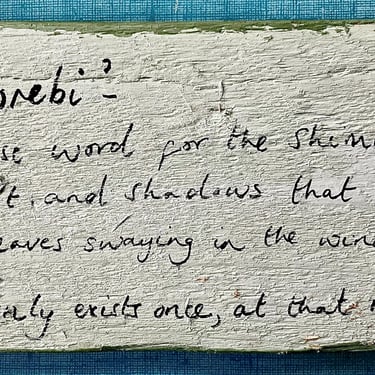 orebi'-
se word for the shim
t, and shadows that
eaves swaying in the wind
nly exists once, at that